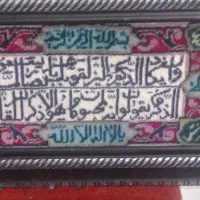 بسم الله الرحمن الرحيم
وان يكاد الذين كفروا ليزلقونك بابصارهم لما سمعوا
الذكر و يقولون انه لمجنون و ما هو الا ذكر للعالمين